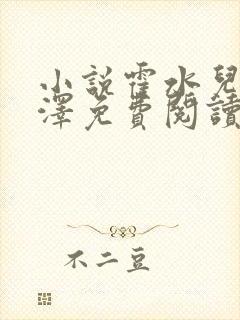 小說霍水兒
澤免費閱讀
不二豆